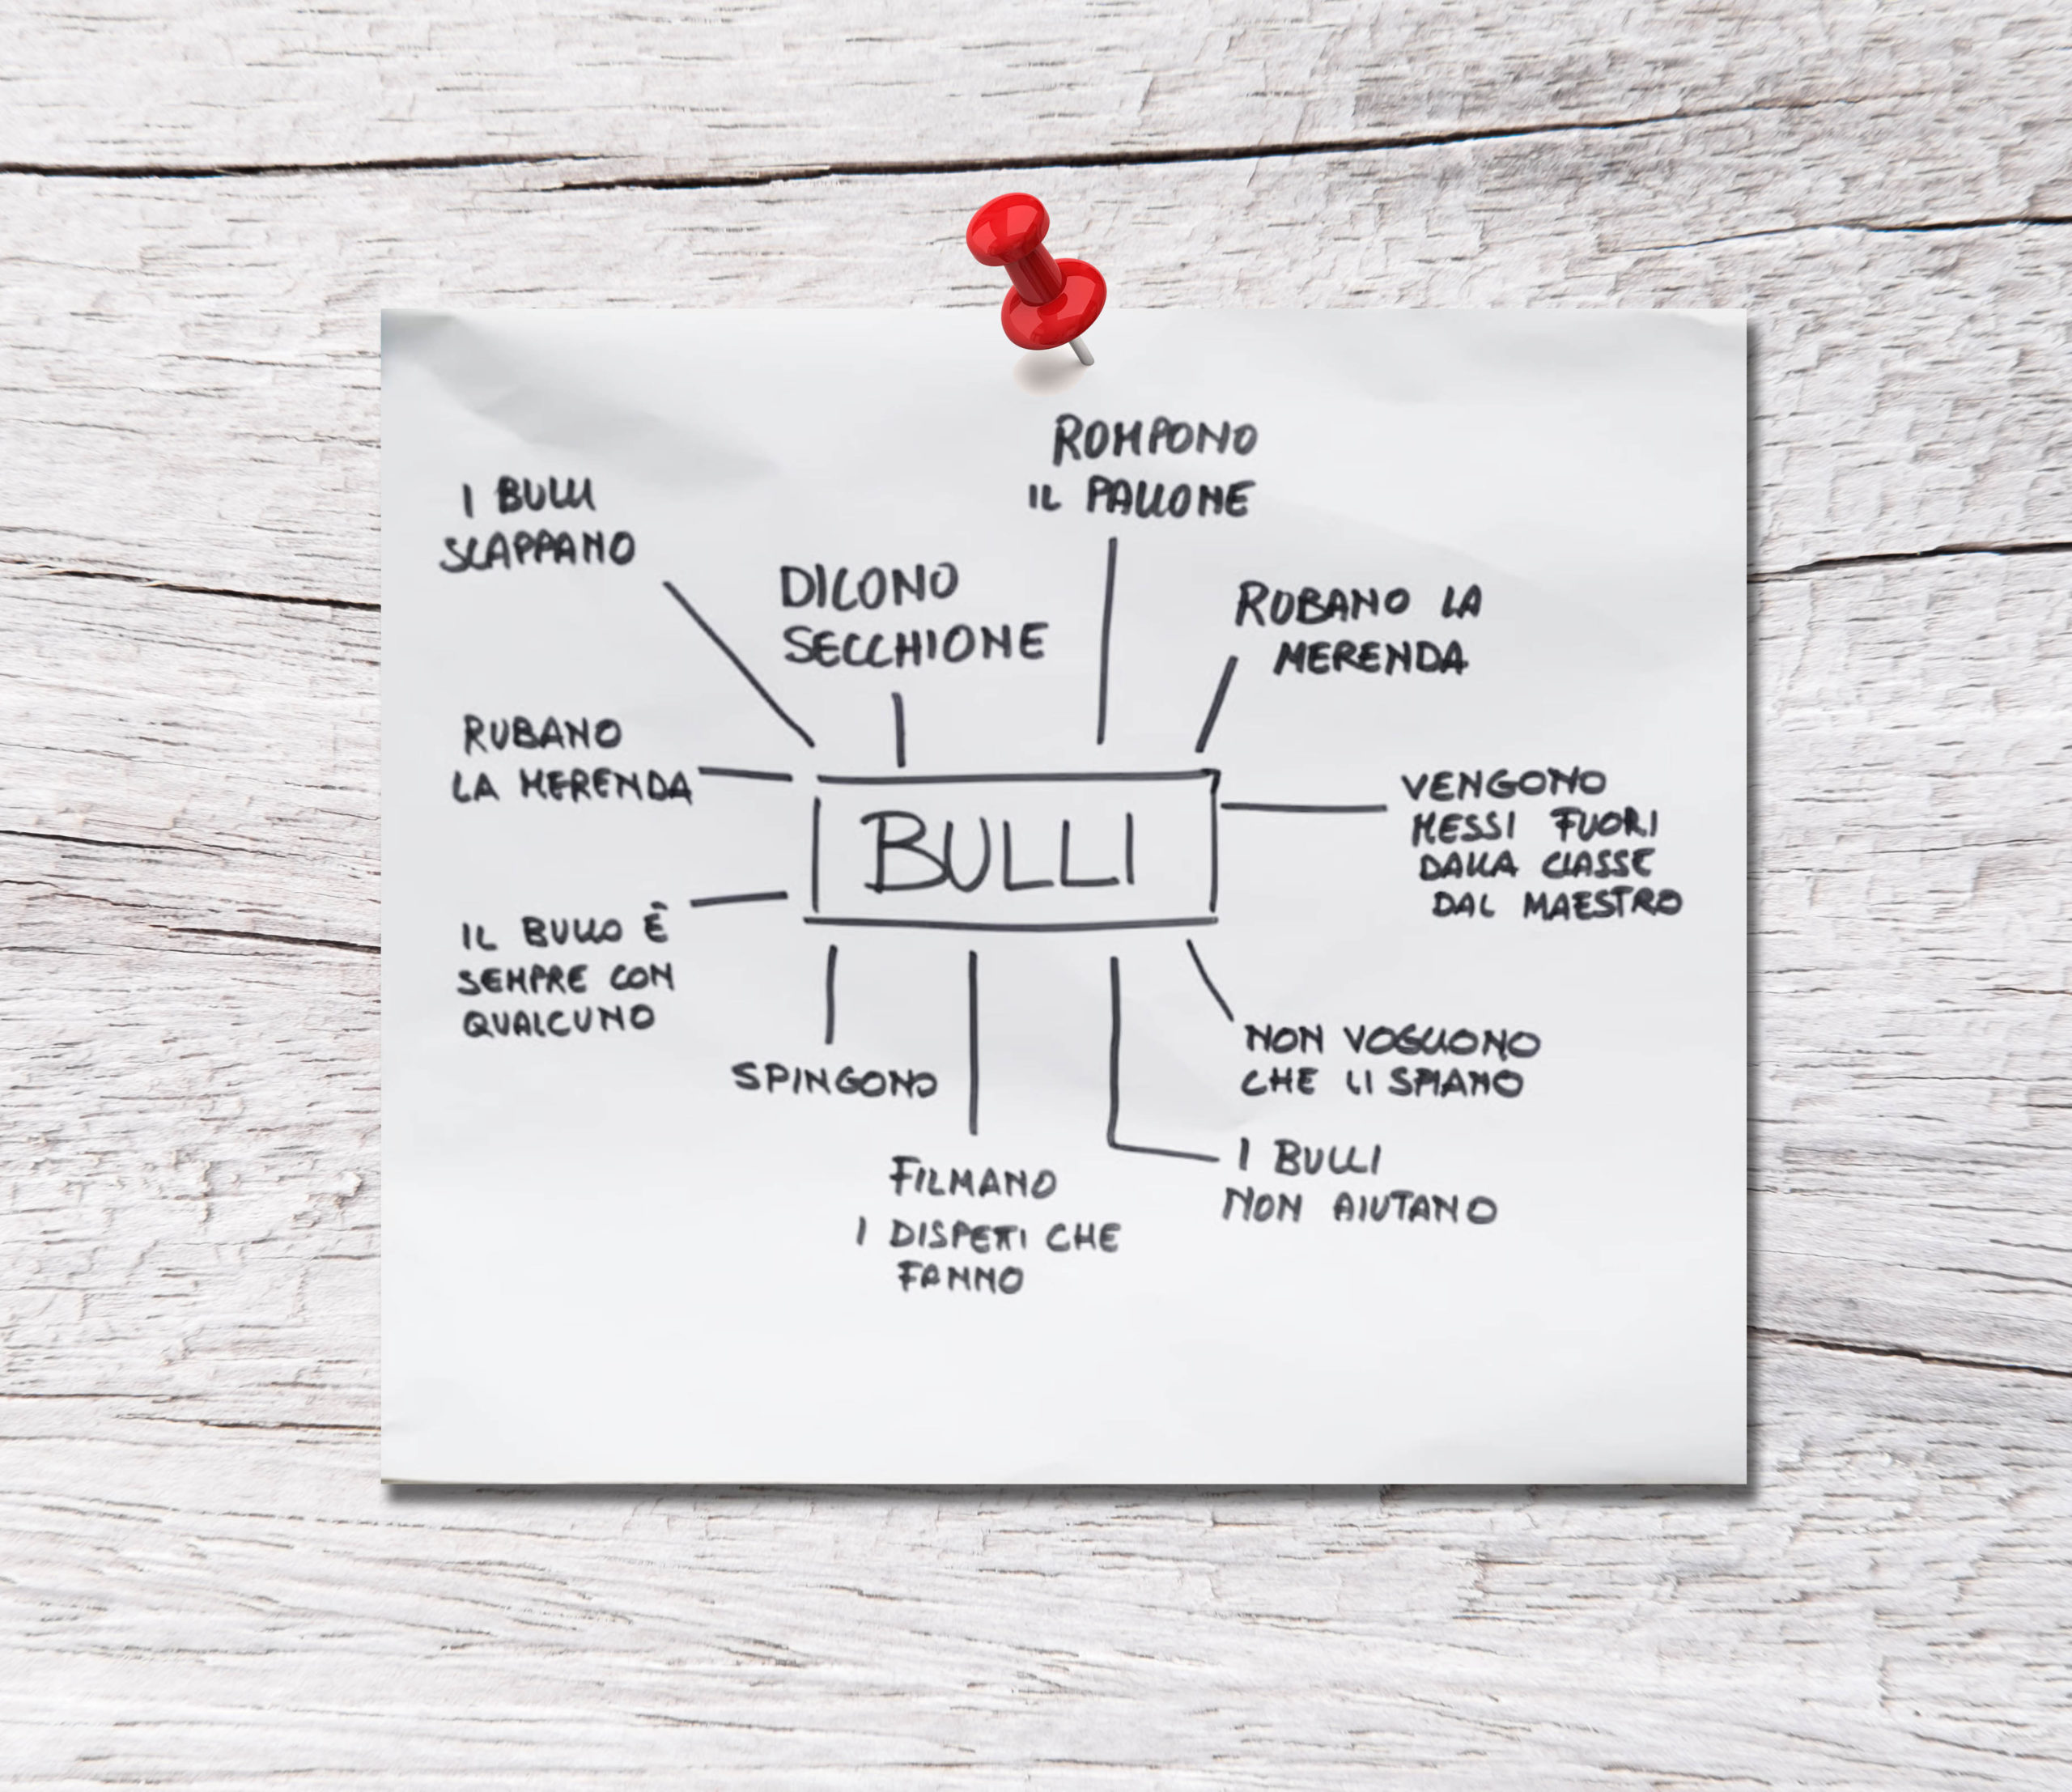 ROMPONO
IL PALLONE
I BULLI
SCAPPANO
DICONO
SECCHIONE
RUBANO LA
MERENDA
RUBANO
LA MERENDA
BULLI
VENGONO
MESSI FUORI
DALLA CLASSE
DAL MAESTRO
IL BULLO È
SEMPRE CON
QUALCUNO
SPINGONO
NON VOGLIONO
CHE LI SPIANO
FILMANO
I DISPETTI CHE
FANNO
I BULLI
NON AIUTANO